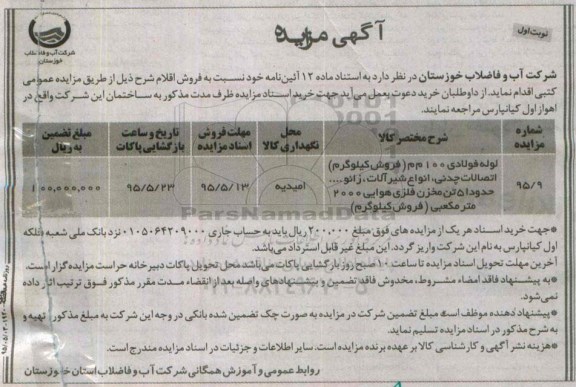 آگهی مزایده
نوبت اول
شرکت آب و فاضلاب
خوزستان
شرکت آب و فاضلاب خوزستان در نظر دارد به استناد ماده ۱۲ آئین‌نامه خود نسبت به فروش اقلام شرح ذیل از طریق مزایده عمومی
کتبی اقدام نماید. از داوطلبان خرید دعوت بعمل می‌آید جهت خرید اسناد مزایده ظرف مدت مذکور به ساختمان این شرکت واقع در
اهواز اول کیانپارس مراجعه نمایند.
شماره مزایده | شرح مختصر کالا | محل نگهداری کالا | مهلت فروش اسناد مزایده | تاریخ و ساعت بازگشایی پاکات | مبلغ تضمین به ریال
۹۵/۹ | لوله فولادی ۱۰۰ م م (فروش کیلوگرم) | امیدیه | ۹۵/۵/۱۳ | ۹۵/۵/۲۳ | ۱۰۰,۰۰۰,۰۰۰
اتصالات چدنی، انواع شیرآلات، زانو....
حدود ۵۱ تن مخزن فلزی هوایی ۲۰۰۰
متر مکعبی (فروش کیلوگرم)
ParsNamadData
*جهت خرید اسناد هر یک از مزایده های فوق مبلغ ۲۰۰,۰۰۰ ریال باید به حساب جاری ۰۱۰۵۰۶۴۲۰۹۰۰۰ نزد بانک ملی شعبه فلکه
اول کیانپارس به نام این شرکت واریز گردد. این مبلغ غیر قابل استرداد می‌باشد.
آخرین مهلت تحویل اسناد مزایده تا ساعت ۱۰ صبح روز بازگشایی پاکات می‌باشد. محل تحویل پاکات دبیرخانه حراست مزایده گزار است.
*به پیشنهاد فاقد امضاء مشروط، مخدوش فاقد تضمین و پیشنهادهای واصله بعد از انقضاء مدت مقرر مذکور فوق ترتیب اثار داده
نمی‌شود.
*پیشنهاد دهنده موظف است مبلغ تضمین شرکت در مزایده به صورت چک تضمین شده بانکی در وجه این شرکت به مبلغ مذکور تهیه و
به شرح مذکور در اسناد مزایده تسلیم نماید.
*هزینه نشر آگهی و کارشناسی کالا بر عهده برنده مزایده است. سایر اطلاعات و جزئیات در اسناد مزایده مندرج است.
روابط عمومی و آموزش همگانی شرکت آب و فاضلاب استان خوزستان